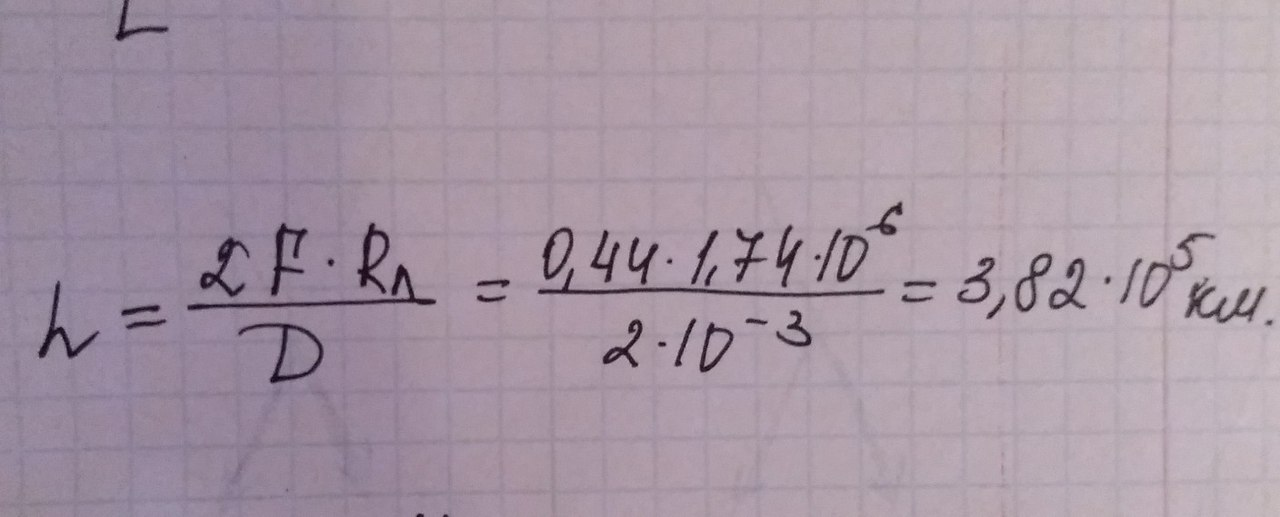 L
h = 2F · Rл / D = 0,44 · 1,74 · 10⁻⁶ / 2 · 10⁻³ = 3,82 · 10⁵ км.